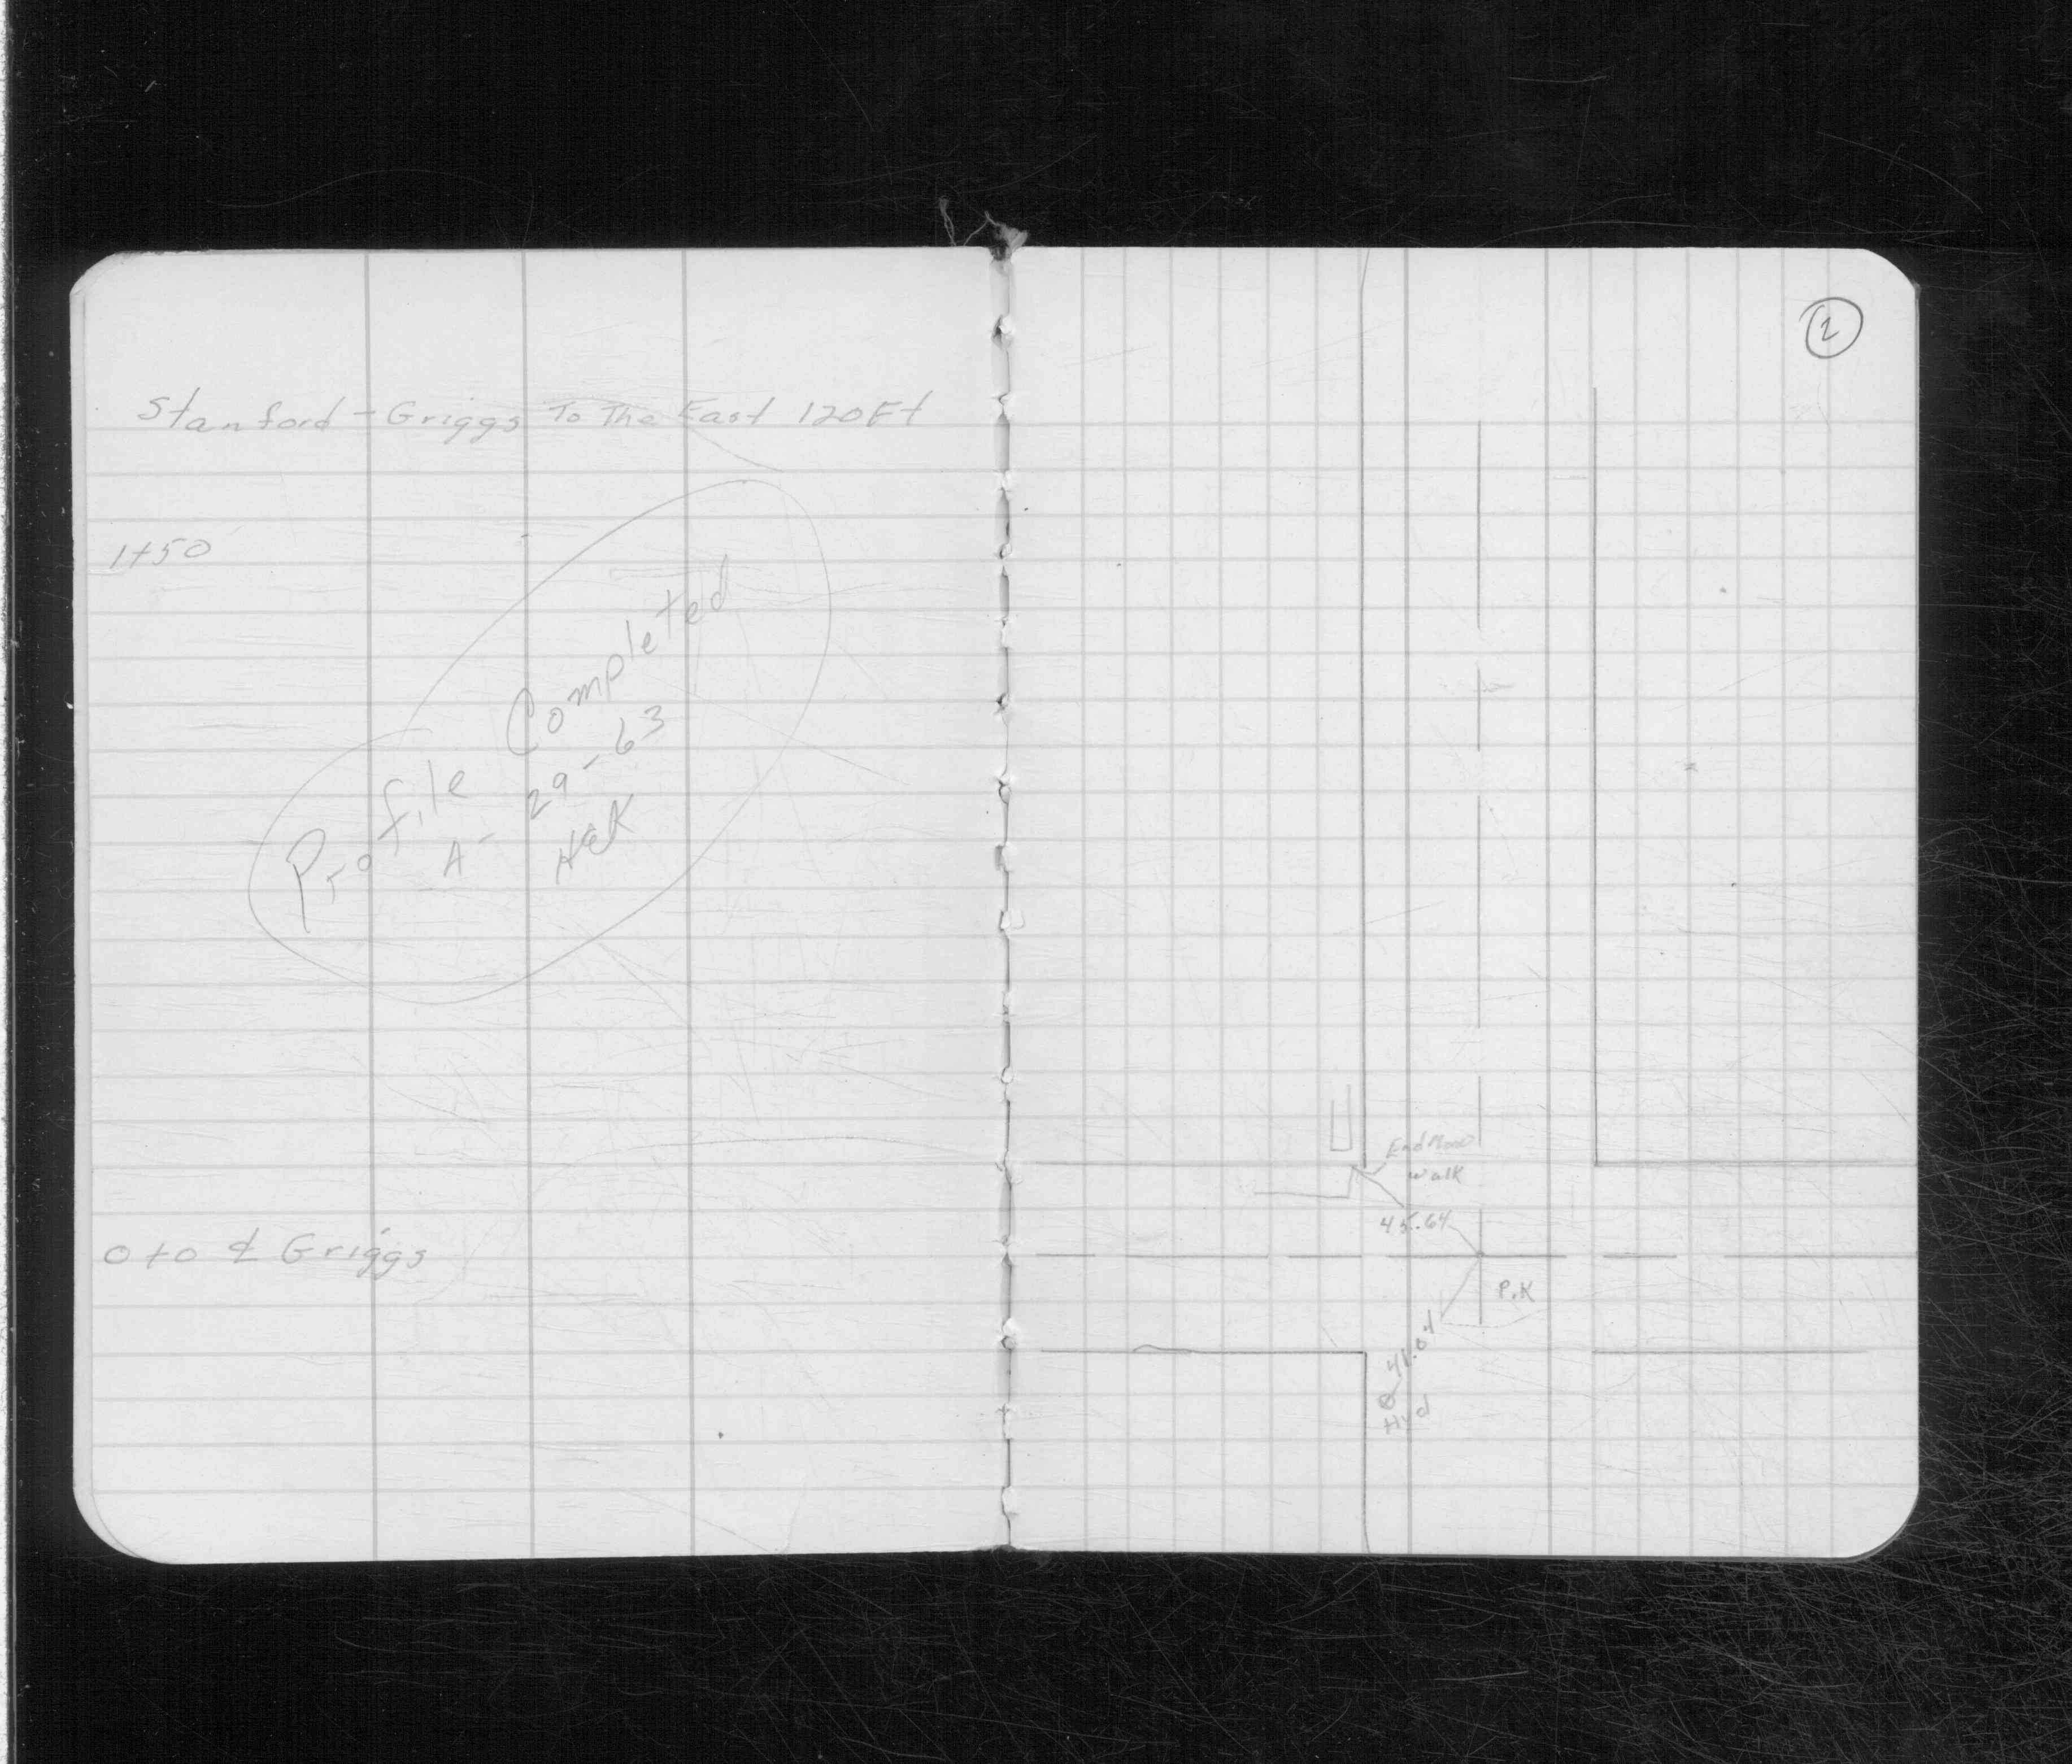 Stanford - Griggs To The East 120Ft
1+50
Profile Completed
A- 29-63
0+0 ⅊ Griggs
2
End
Walk
45.64
P.K
41.04
Hyd